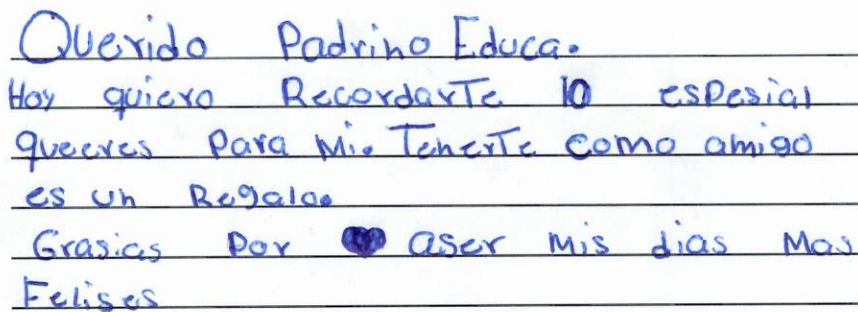 Querido Padrino Educa.
Hoy quiero Recordarte lo espesial
queeres para mi. Tenerte como amigo
es un Regalo.
Grasias por aser mis dias mas
Felises